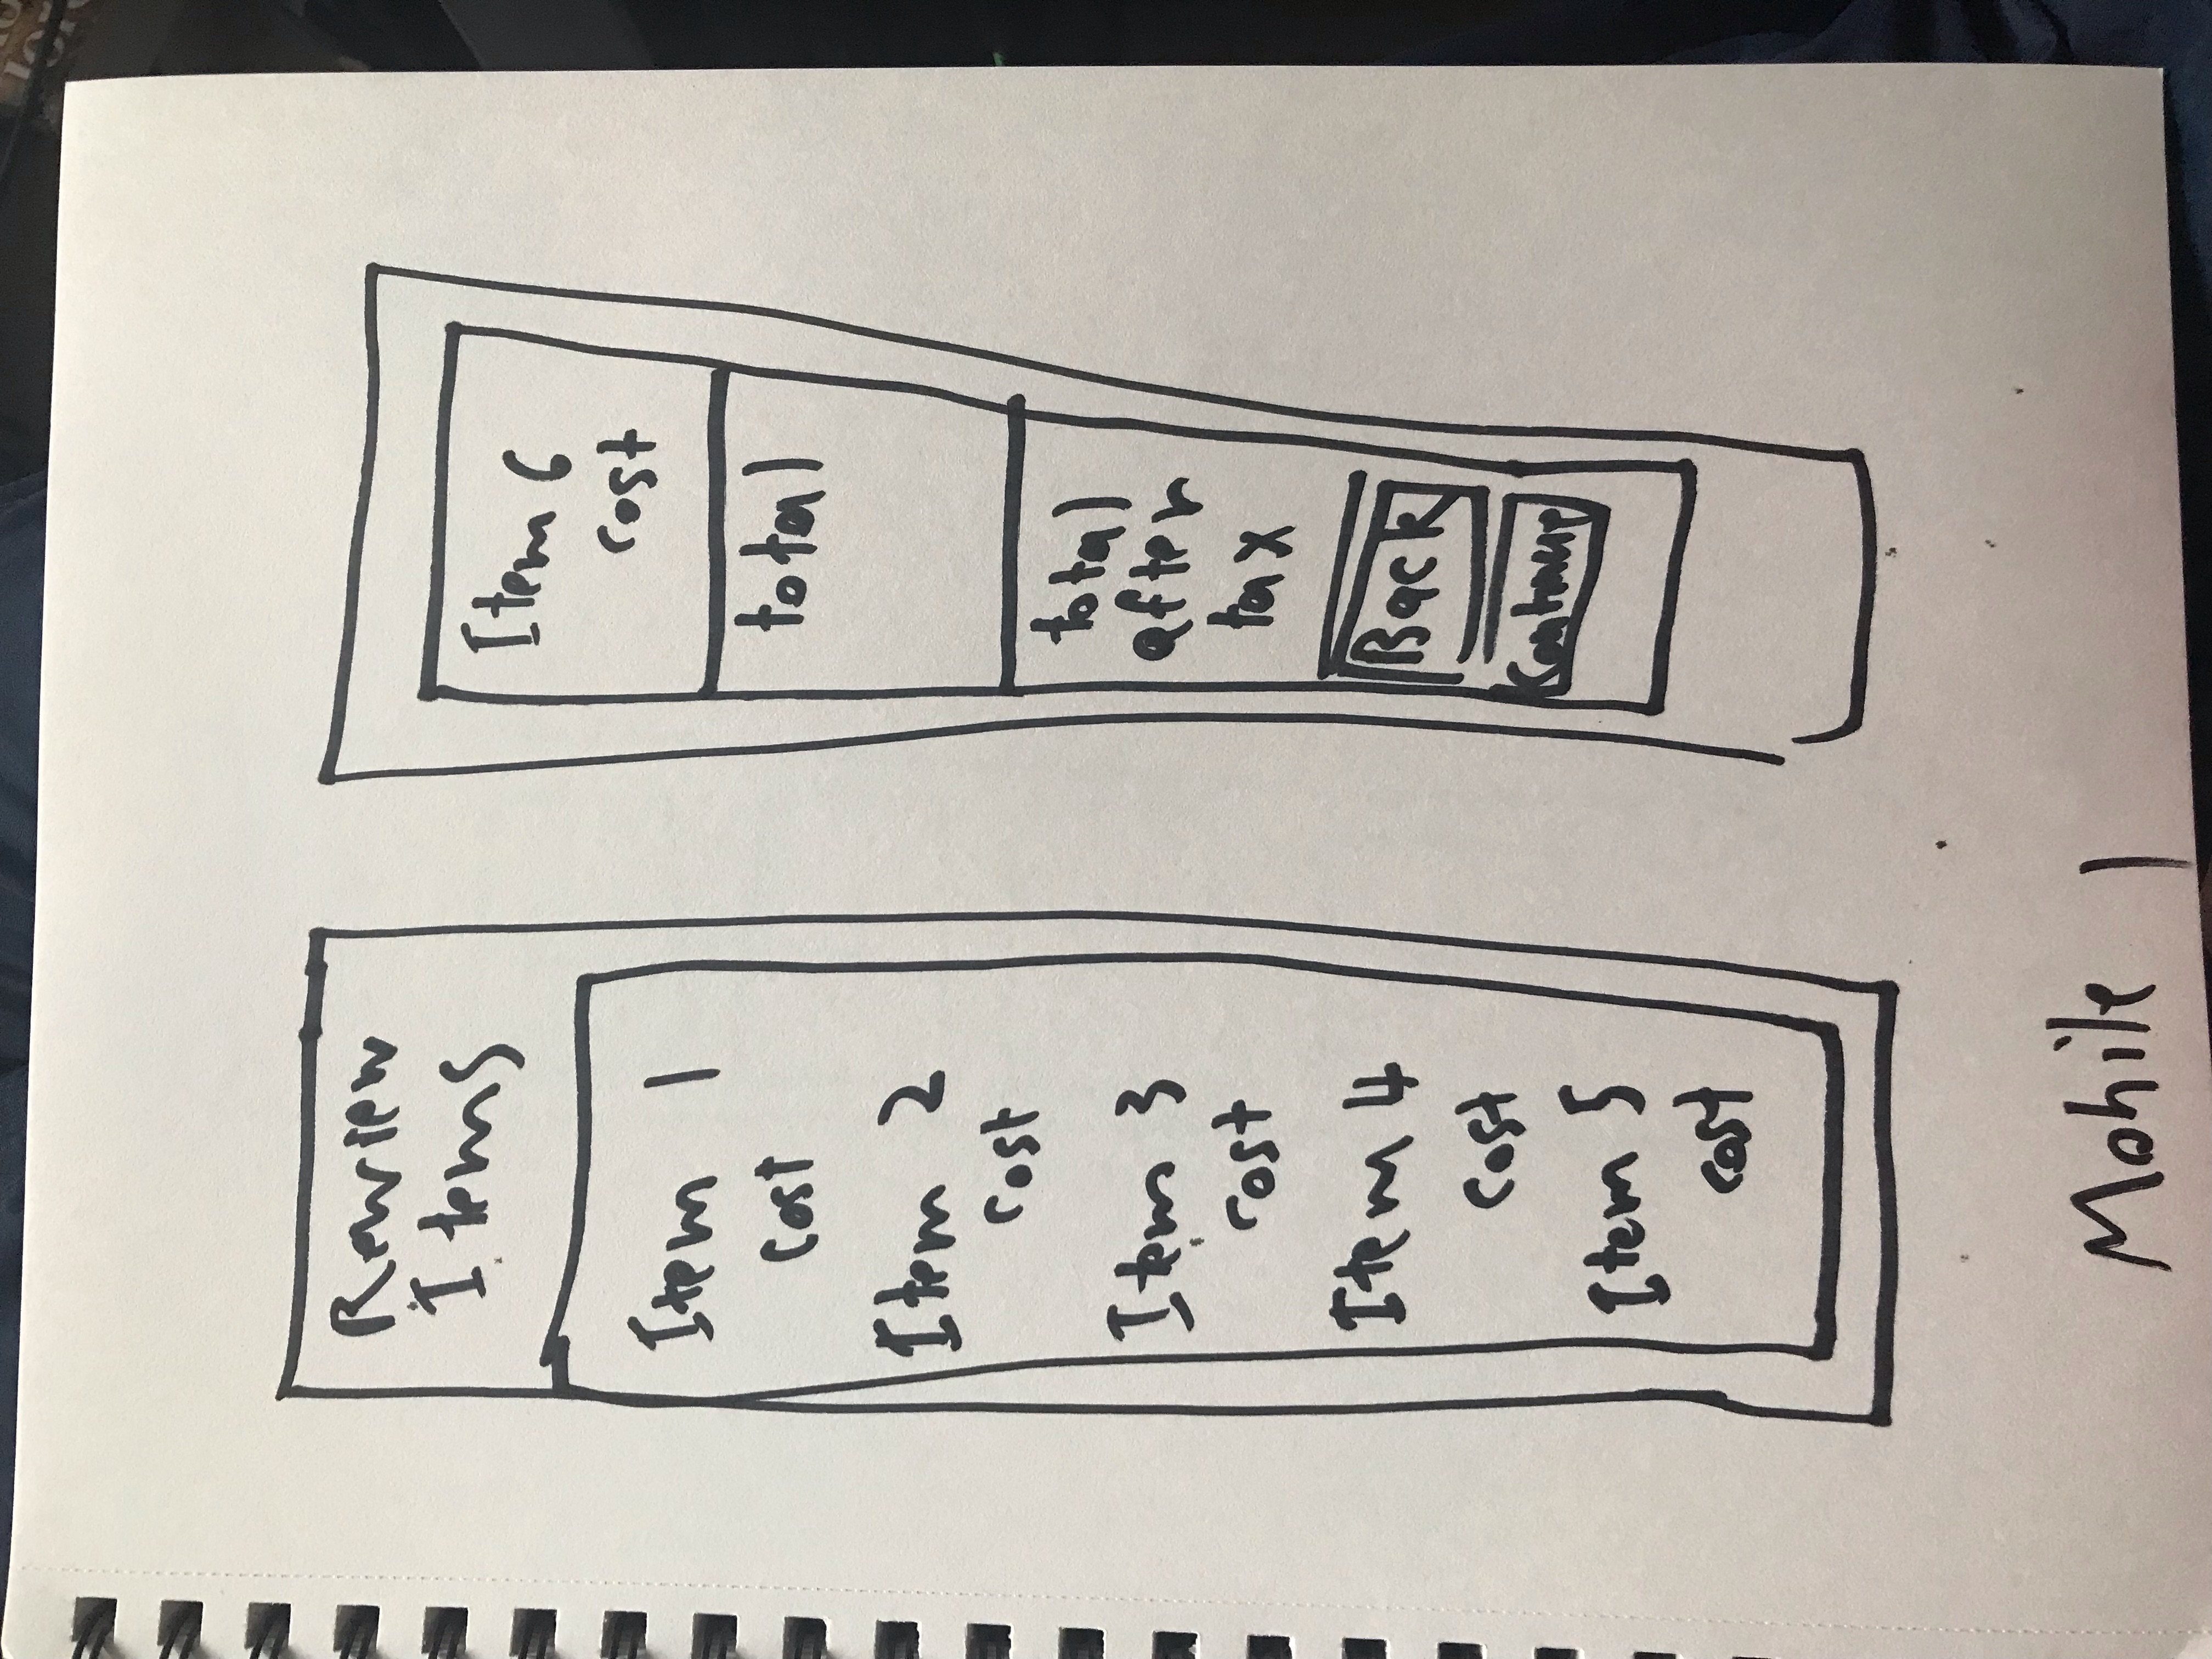 Review
Items
Item 1
cost
Item 2
cost
Item 3
cost
Item 4
cost
Item 5
cost
Item 6
cost
total
total
after
tax
Back
Kontinue
Mobile 1